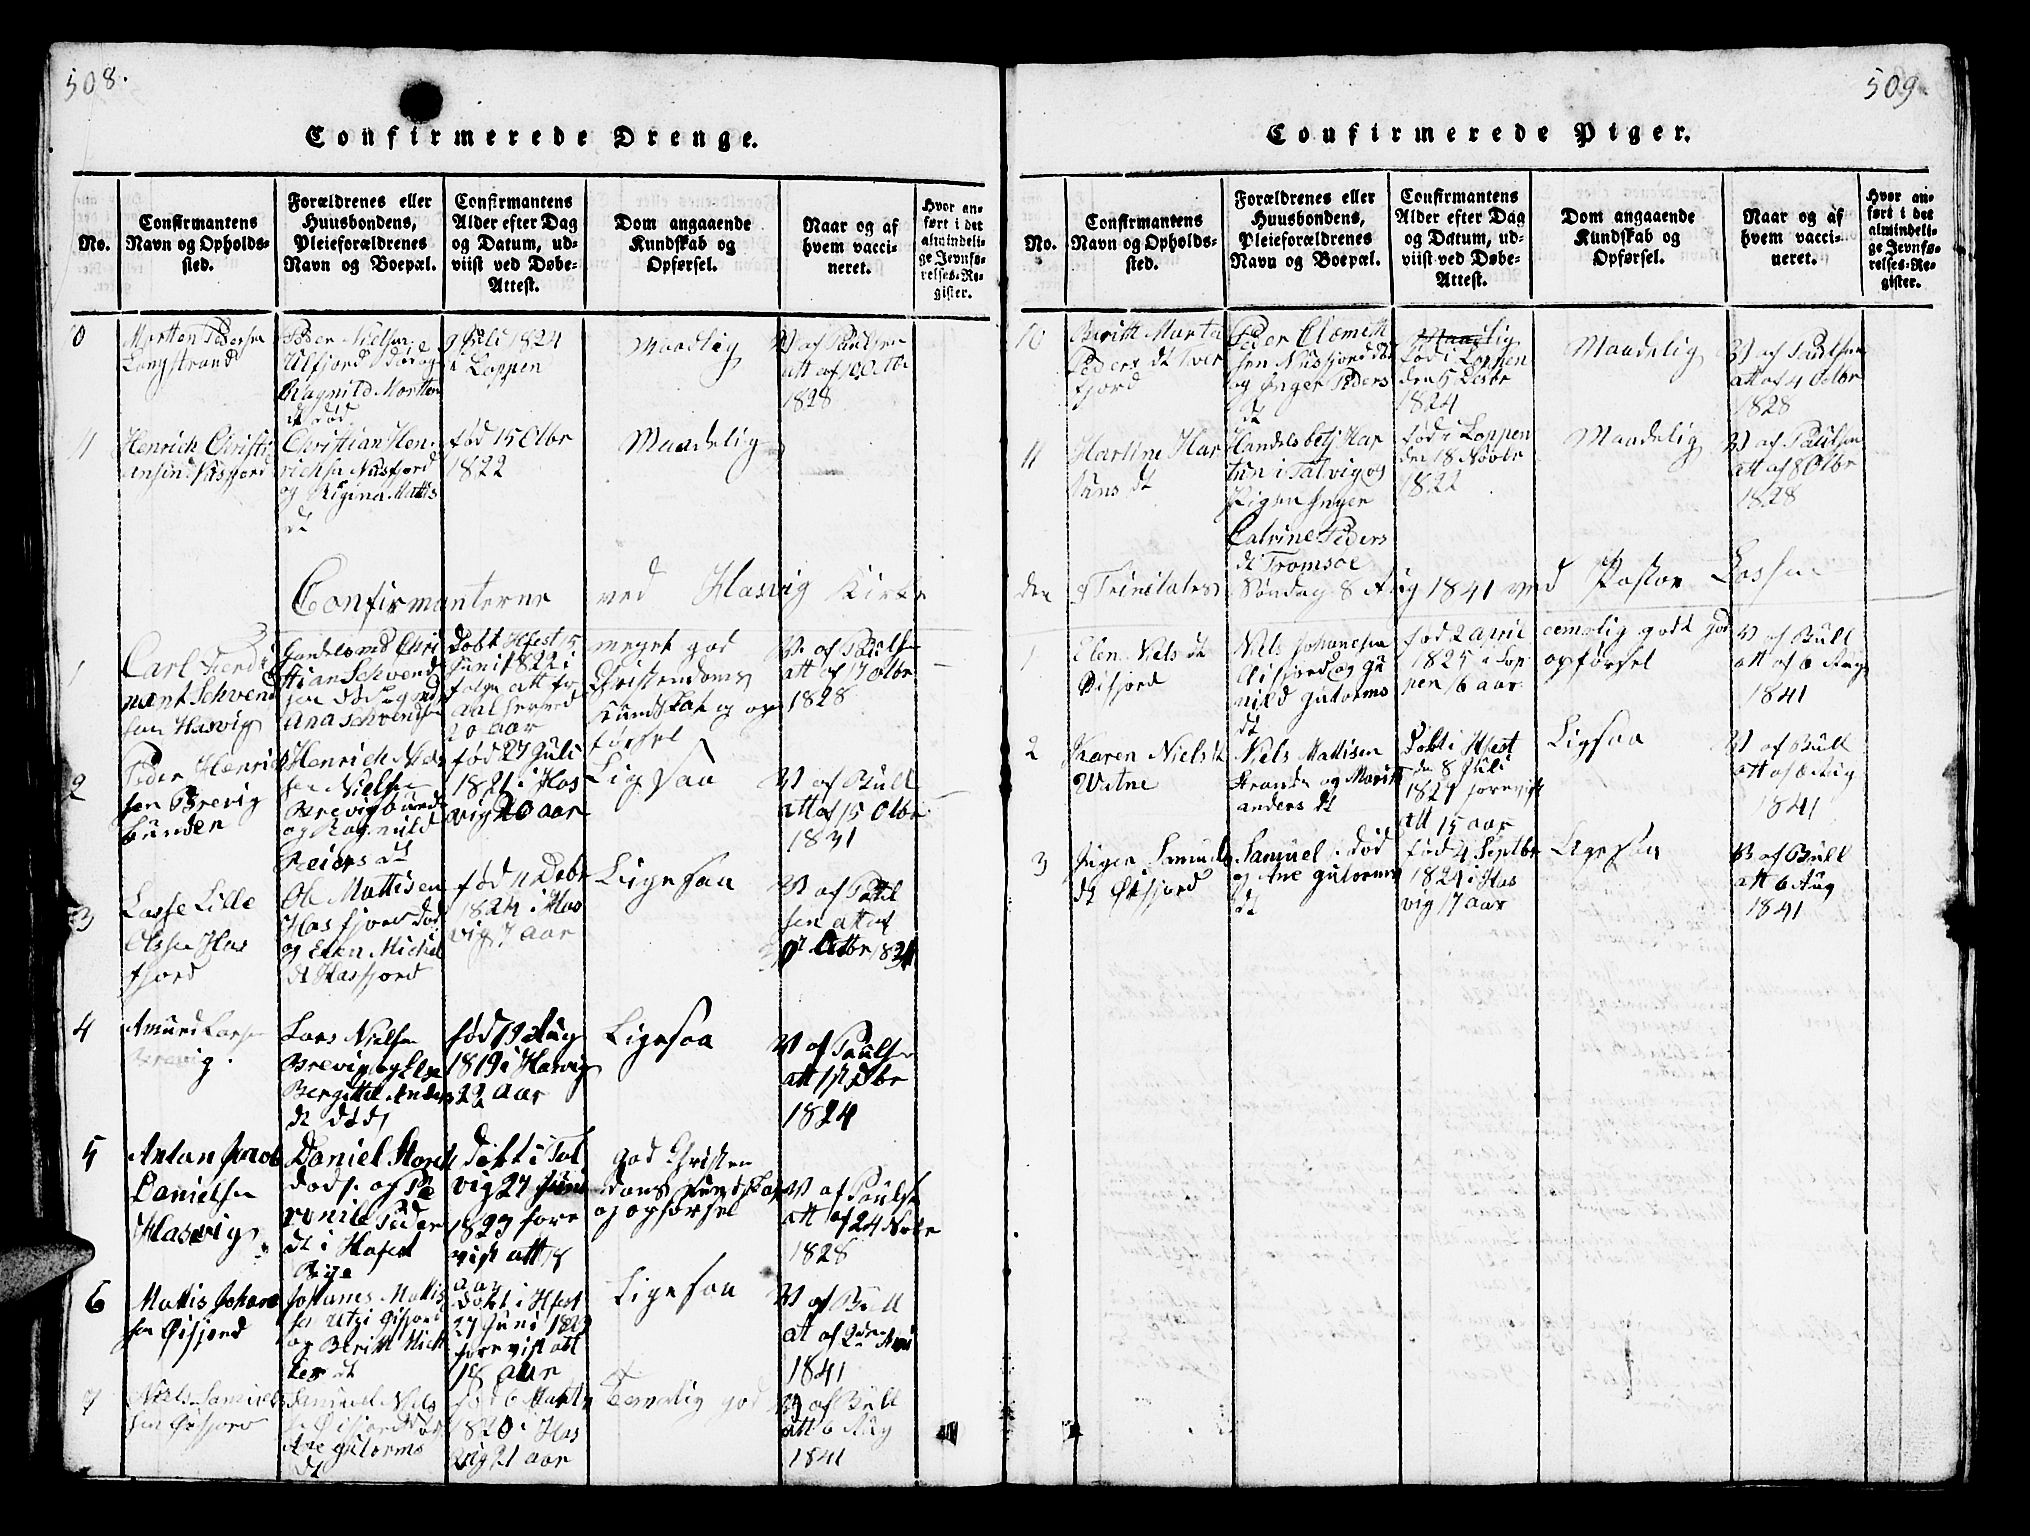 508.
Confirmerede Drenge.
No.
Confirmantens
Navn og Opholds-
sted.
Forældrenes eller
Huusbondens,
Pleieforældrenes
Navn og Boepæl.
Confirmantens
Alder efter Dag
og Datum, ud-
viist ved Døbe-
Attest.
Dom angaaende
Kundskab og
Opførsel.
Naar og af
hvem vacci-
neret.
Hvor an-
ført i det
almindeli-
ge Jevnfø-
relses-Re-
gister.
Morten Pedersen
Langstrand
Peder Nielsen
Ulfjord
Ragnild Morten
dt død
9 Juli 1824
i Loppen
Maadlig
V af Paulsen
att af 10 Otbr
1828
11
Henrich Christi
ensen Nusfjord
Christian Hen-
richsen Nusfjord
og Regina Mattis
dt
fød 15 Otbr
1822
Maadelig
Confirmanterne ved Hasvig Kirke
1
Carl Ferdi
nant Schvend
sen Hasvig
Handelsmd Chri
stian Schvend
sen død og
Ana Schvendsen
Døbt Hfest 15
Juni 1822 i
følge att
20 aar
meget god
Christendoms
Kundskab og op
førsel
V. af Paulsen
att af 17 Otbr
1828
2
Peder Henrich
sen Brevig
bunden
Henrich
sen Nielsen
Brevigbunden
og Ragnild
Reiers dt
fød 27 Juli
1821 i Has
vig 20 aar
Ligesaa
V af Bull
att af 15 Otbr
1831
3
Lasse Lille
Olsen Has
fjord
Ole Mattisen
Hasfjord død
og Elen Michel
dt Hasfjord
fød 11 Debr
1824 i Has
vig 17 aar
Ligesaa
V af Paul
sen att af
Otbr 1831
4
Amund Larsen
Brevig.
Lars Nielsen
Brevig og Else
Bergitte Anders
dt død
fød 19 Aug
1819 i Hasvig
22 aar
Ligesaa
V af Paulsen
att
1824
5
Anton Jacob
Danielsen
Hasvig
Daniel
død. og Pe
ronile Peder
dt i Hafest
Bye
Døbt i Tal
vig 27 Juni
1823 fore
vist att 18
aar
god Christen
doms Kundskab
og opførsel
V af Paulsen
att af 24 Nvbr
1828
6
Mattis Johane
sen Øisfjord
Johanes Mattis
sen Utzi Øisfjord
og Beritt Mich
els dt
Døbt i Hfest
27 Juni 1823
forevist att
18 aar
Ligesaa
V af Bull
att af
1841
7
Niels Samuels
sen Øisfjord
Samuel Niels
sen Øisfjord død
Ane Gutorms
dt
fød 6 Marts
1820 i Has
vig 21 aar
Temelig god
V af Bull
att 6 Aug
1841
509.
Confirmerede Piger.
No.
Confirmantens
Navn og Opholds-
sted.
Forældrenes eller
Huusbondens,
Pleieforældrenes
Navn og Boepæl.
Confirmantens
Alder efter Dag
og Datum, ud-
viist ved Døbe-
Attest.
Dom angaaende
Kundskab og
Opførsel.
Naar og af
hvem vacci-
neret.
Hvor an-
ført i det
almindeli-
ge Jevnfø-
relses-Re-
gister.
10
Beritt Marta
Peders dt
fjord
Peder Clemett
sen Nusfjord
og Inger Peders
dt
Maadlig
fød i Loppen
den 5 Desbr
1824
Maadelig
V af Paulsen
att af 4 Octbr
1828
11
Hartine Har
tuns dt
Handelsbetj Har
tun i Talvig og
Pigen Inger
Catrine Peders
dt Tromsøe
fød i Loppen
den 18 Novbr
1822
Maadelig
V af Paulsen
att af 8 Otbr
1828
den 9 Trinitates Søndag 8 Aug 1841 ved Pastor Lassen
1
Elen Niels dt
Øisfjord
Niels Johanesen
Øisfjord og Gu
nild Gutorms
dt
fød 2 april
1825 i Lop
pen 16 aar
temelig godt god
opførsel
V af Bull
att af 6 Aug
1841
2
Karen Niels dt
Vatne
Niels Mattisen
Stranden og Maritt
anders dt
Døbt i Hfest
den 8 Juli
1827 forevist
att 15 aar
Ligsaa
V af Bull
att af 6 Aug
1841
3
Inger Samuels
dt Øisfjord
Samuel død
og Ane Gutorms
dt
fød 4 Septbr
1824 i Has
vig 17 aar
Ligesaa
V af Bull
att 6 Aug
1841